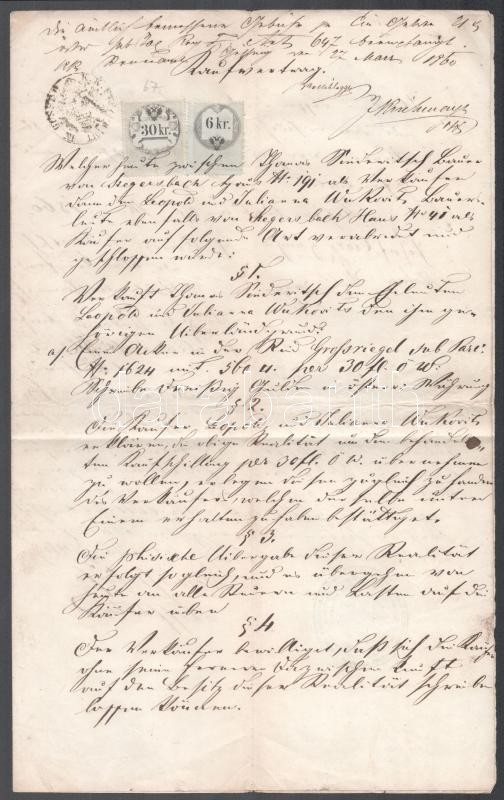 die ämtlich bemessene Gebühr
647
27 März 1860
Kaufvertrag.
67.
30 kr.
6 kr.
Welcher heute zwischen Thomas Sinderitsch Bauer
von Kogersbach Haus No 191 als Verkäufer
dann den Leopold und Julianna Wukovits Bauers-
leute eben falls von Kogersbach Haus No 41 als
Käufer auf folgende Art verabredet und
geschlossen wurde:
§ 1.
Verkauft Thomas Sinderitsch den Eheleuten
Leopold und Julianna Wukovits den ihm ge-
hörigen Überlandgrund
a) Einen Acker in der Ried Grossriegel sub Parc.
No 1624 mit 360 □ per 30 fl. Ö W.
Schreibe dreißig Gulden österr. Währung
§ 2.
Die Käufer, Leopold und Julianna Wukovits
erklären, die obige Realität um den behandel-
ten Kaufschilling per 30 fl. Ö W. übernehmen
zu wollen, erlegen diesen sogleich zu Handen
des Verkäufers welchen derselbe unter
Einem erhalten zu haben bestättiget.
§ 3.
Die phisische Uibergabe dieser Realität
erfolgt sogleich, und es übergehen von
heute an alle Steuern und Lasten auf die
Käufer über
§ 4
Der Verkäufer bewilliget, daß sich die Käufer
ohne seine fernere Dazwischenkunft
auf den Besitz dieser Realität schreiben
lassen können.
Darabanth